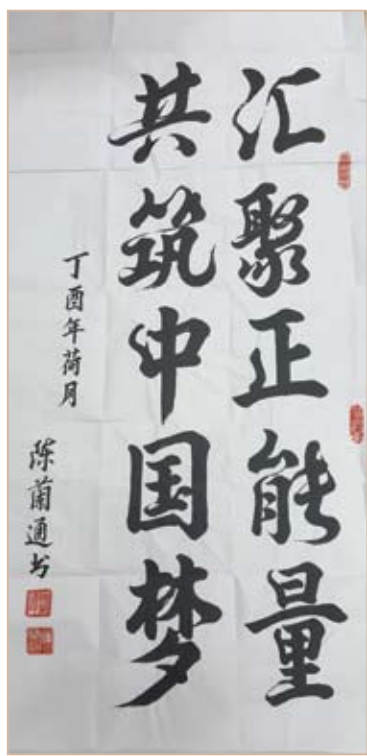 汇聚正能量
共筑中国梦
丁酉年荷月
陈兰通书